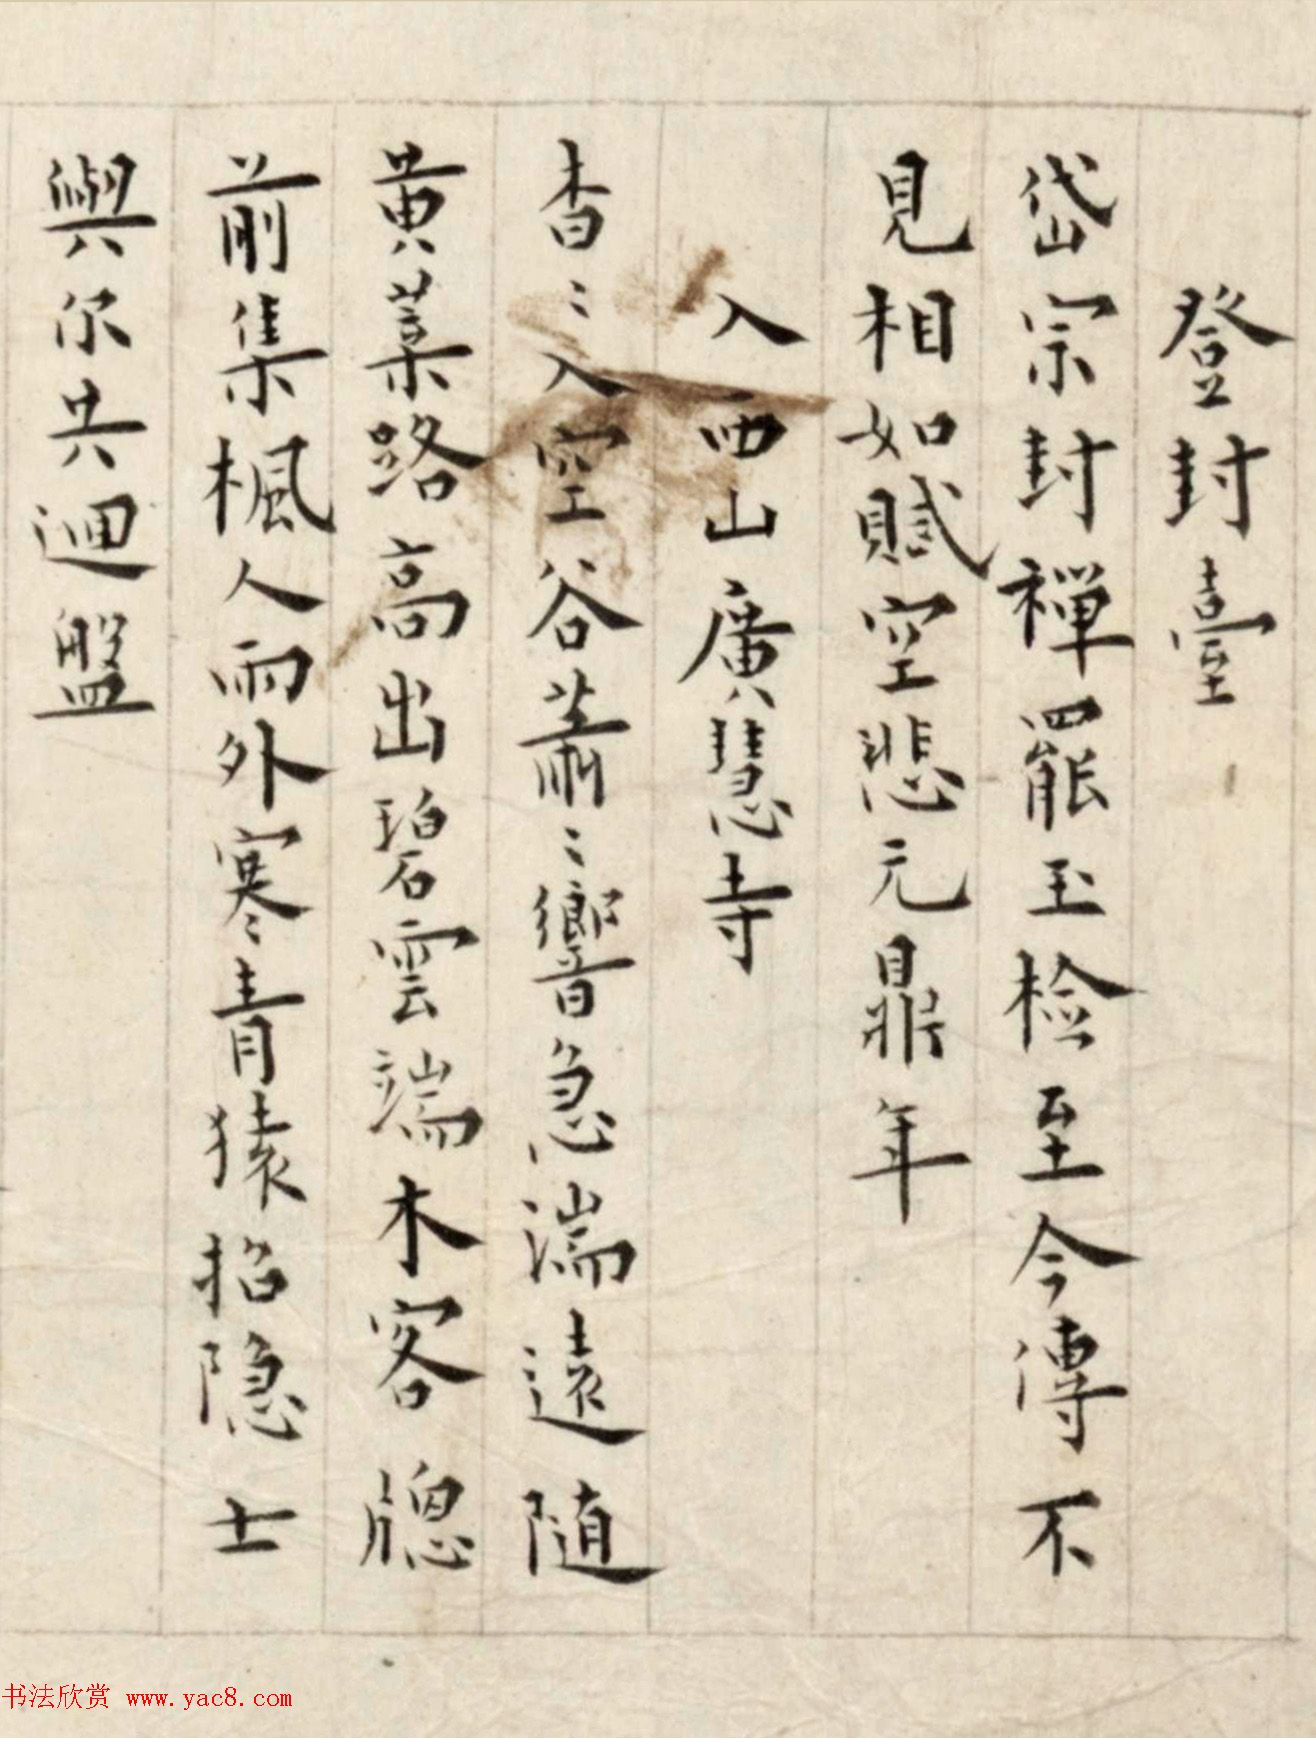 登封臺
岱宗封禪罷玉檢至今傳不
見相如賦空悲元鼎年
入西山廣慧寺
杳〻入空谷蕭〻響急湍遠隨
黄葉路高出碧雲端木客牎
前集楓人雨外寒青猿招隐士
與尔共迴盤
书法欣赏 www.yac8.com